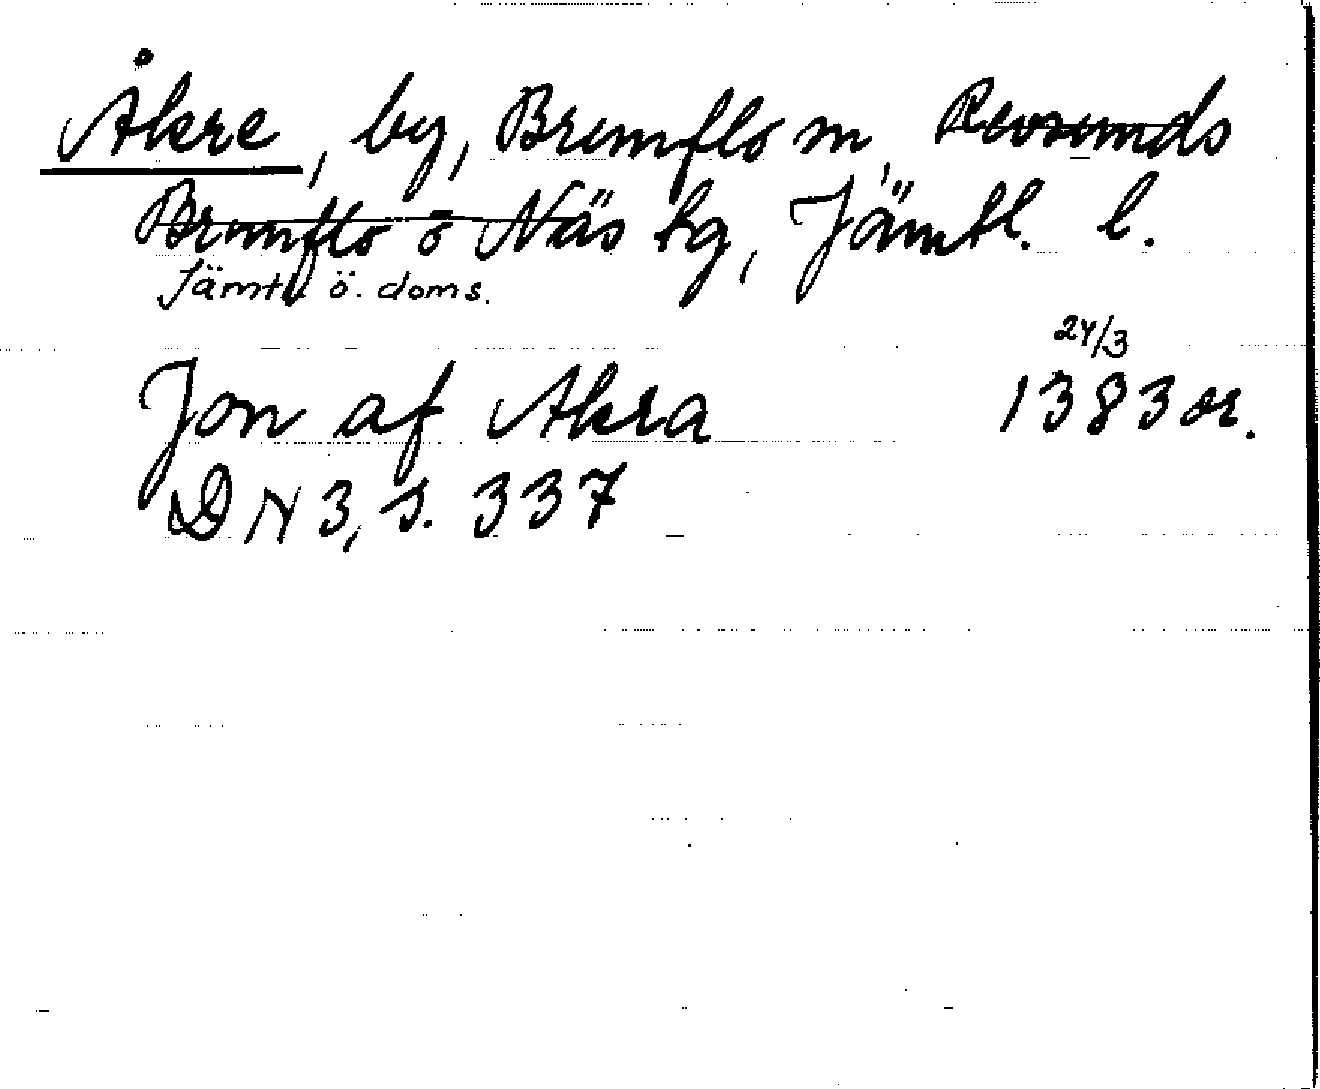 Åkre, by, Brunflo sn, Revsunds
Brunflo o Näs hg, Jämtl. l.
Jämtl. ö. doms.
24/3
Jon af Akra 1383 or.
DN 3, s. 337